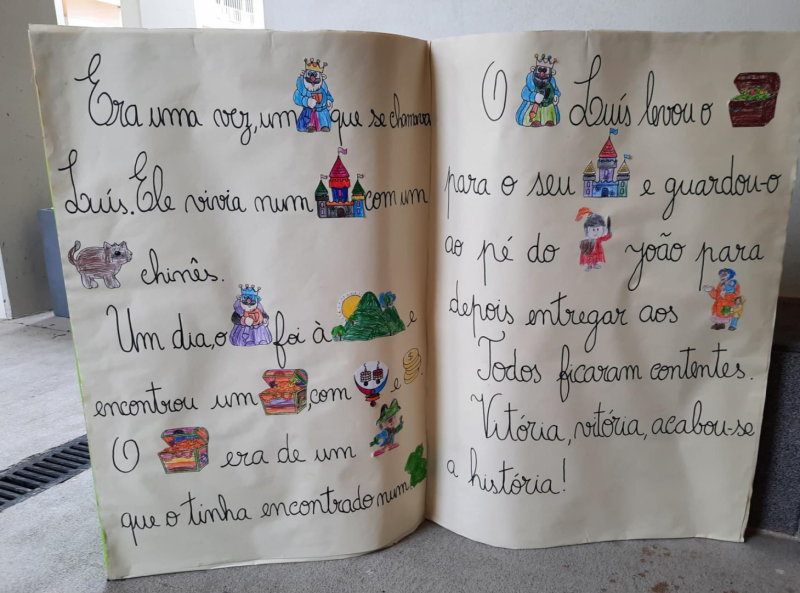 Era uma vez, um que se chamava
Luís. Ele vivia num com um
chinês.
Um dia, o foi à e
encontrou um , com e .
O era de um
que o tinha encontrado num
O Luís levou o
para o seu e guardou-o
ao pé do João para
depois entregar aos
Todos ficaram contentes.
Vitória, vitória, acabou-se
a história!